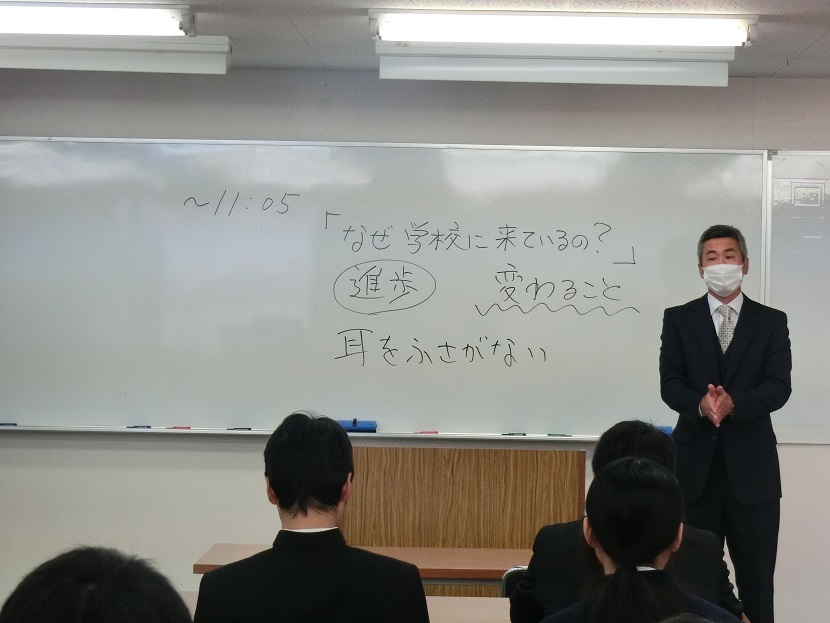 ～11:05
「なぜ学校に来ているの?」
進歩 変わること
耳をふさがない